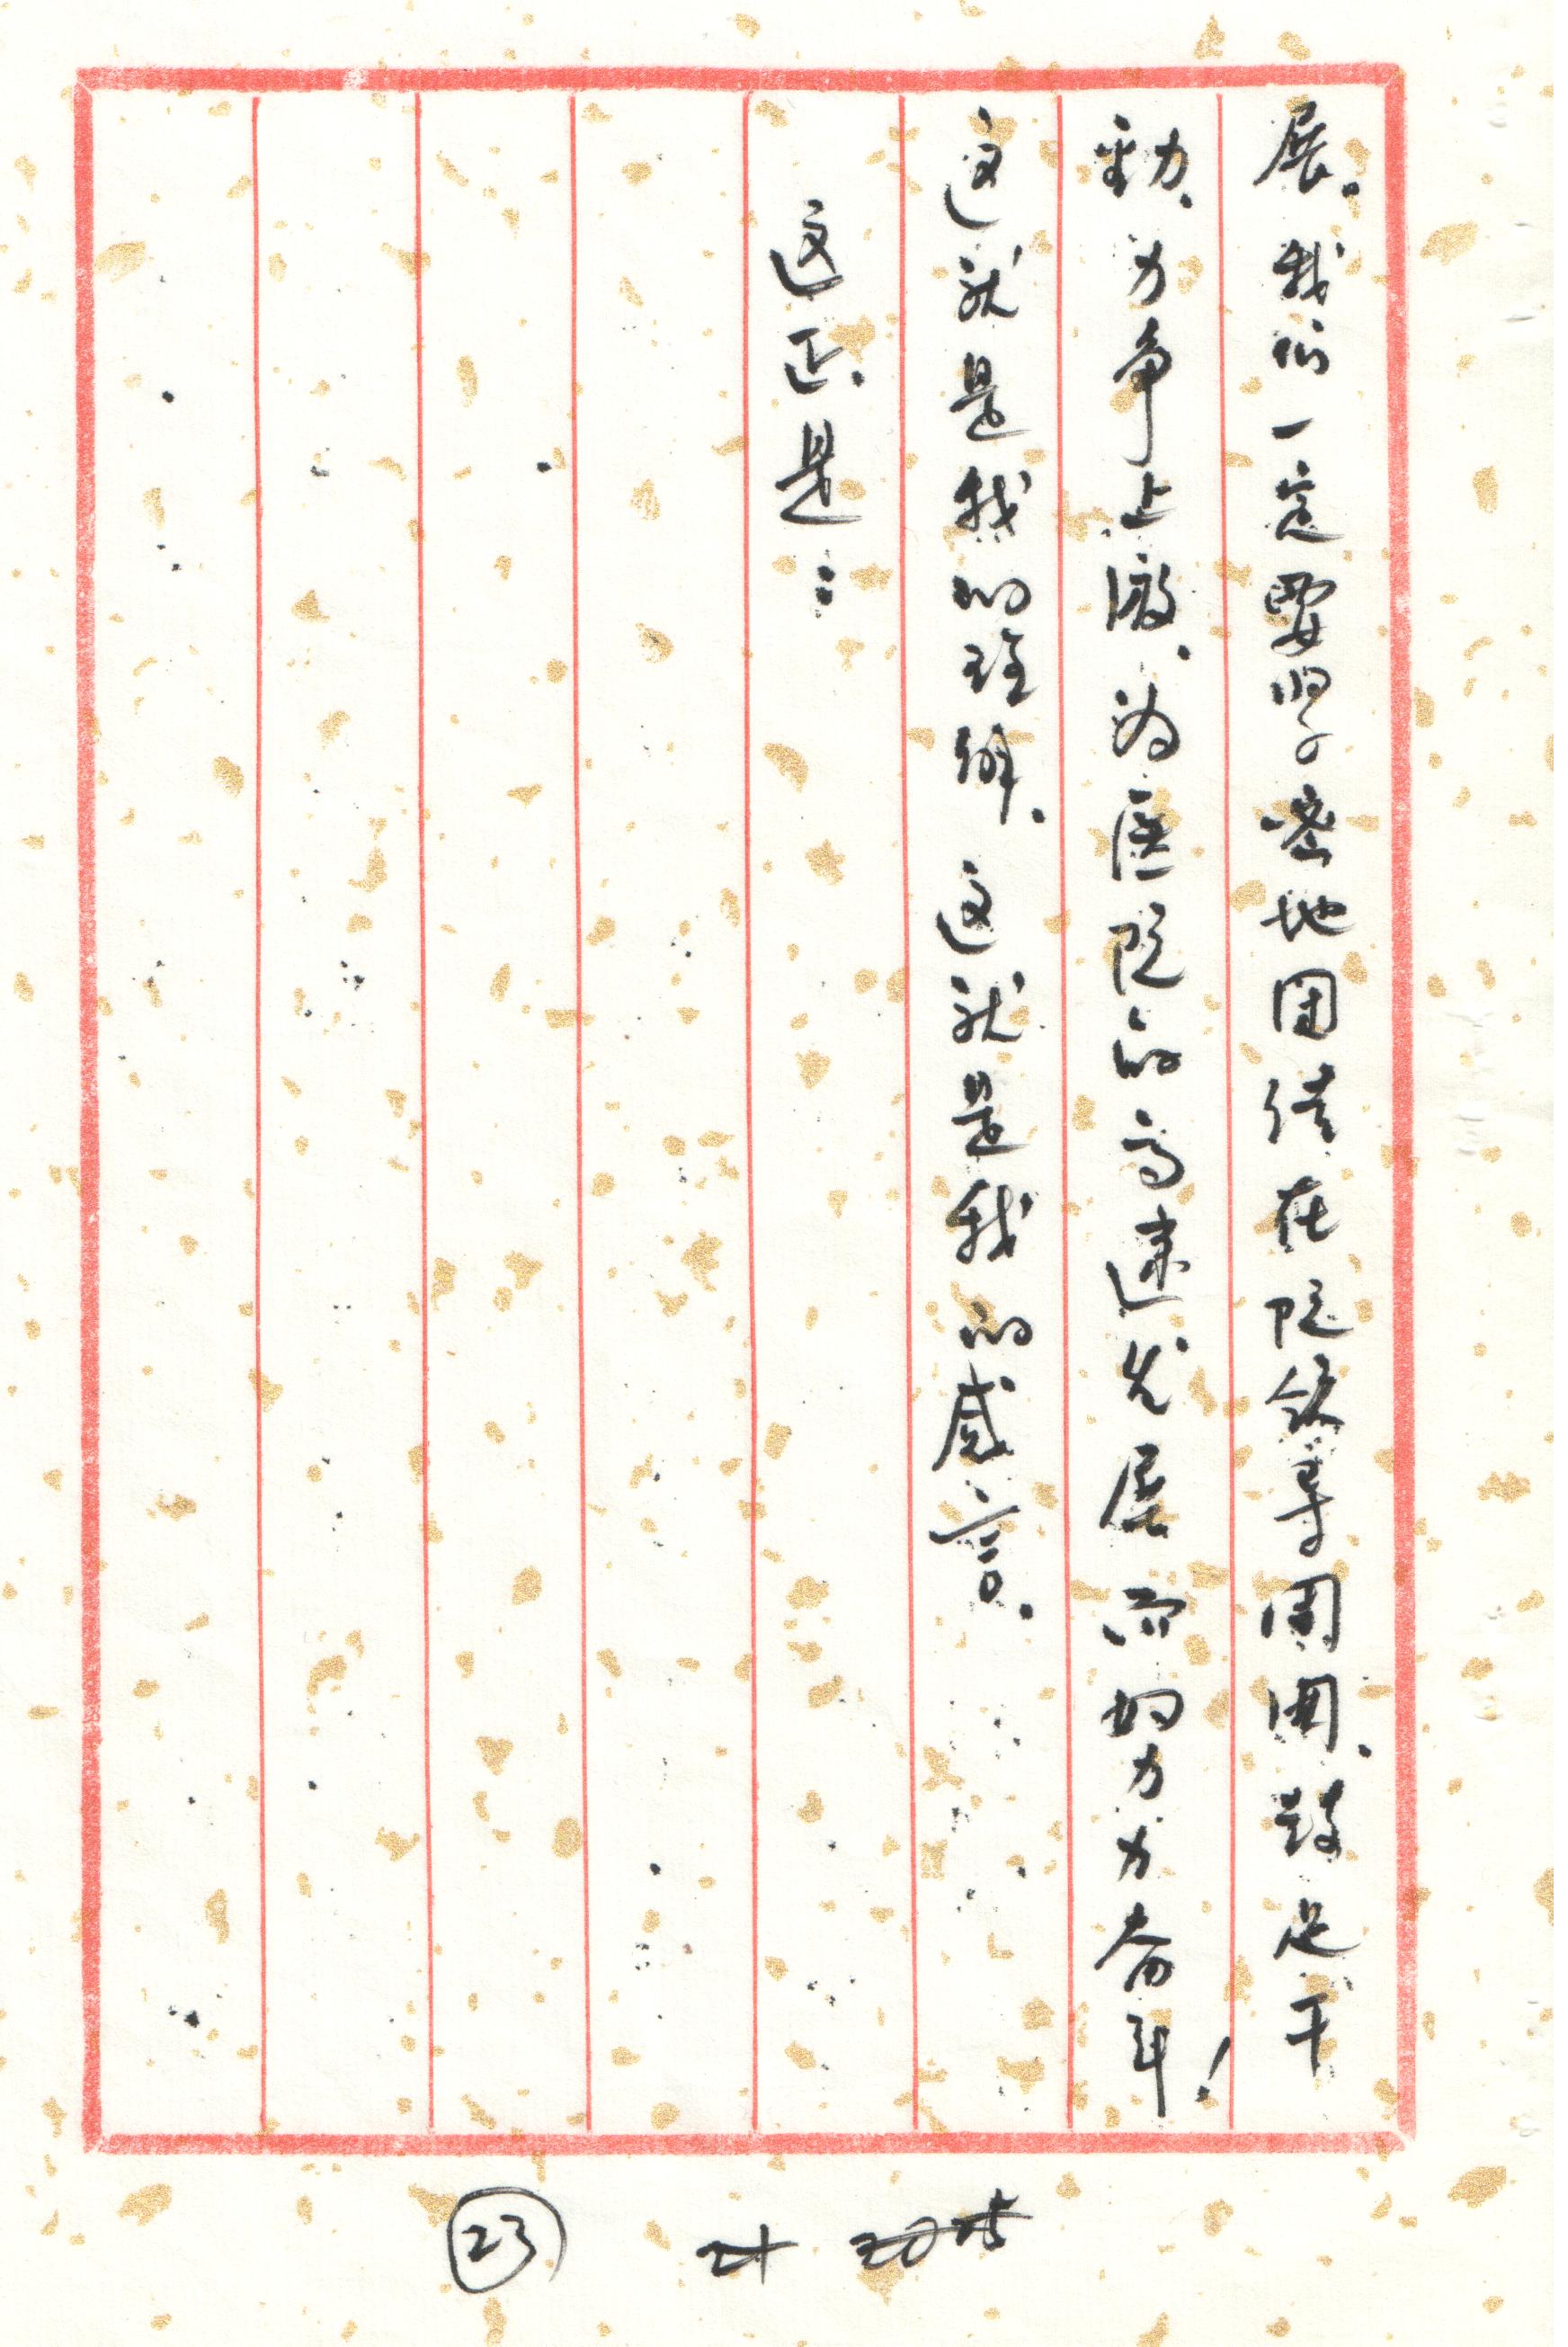 展。我们一定要紧密地团结在院领导周围、鼓足干
劲、力争上游、为医院的高速发展而努力奋斗！
这就是我的理解。这就是我的感言。
这正是：
23